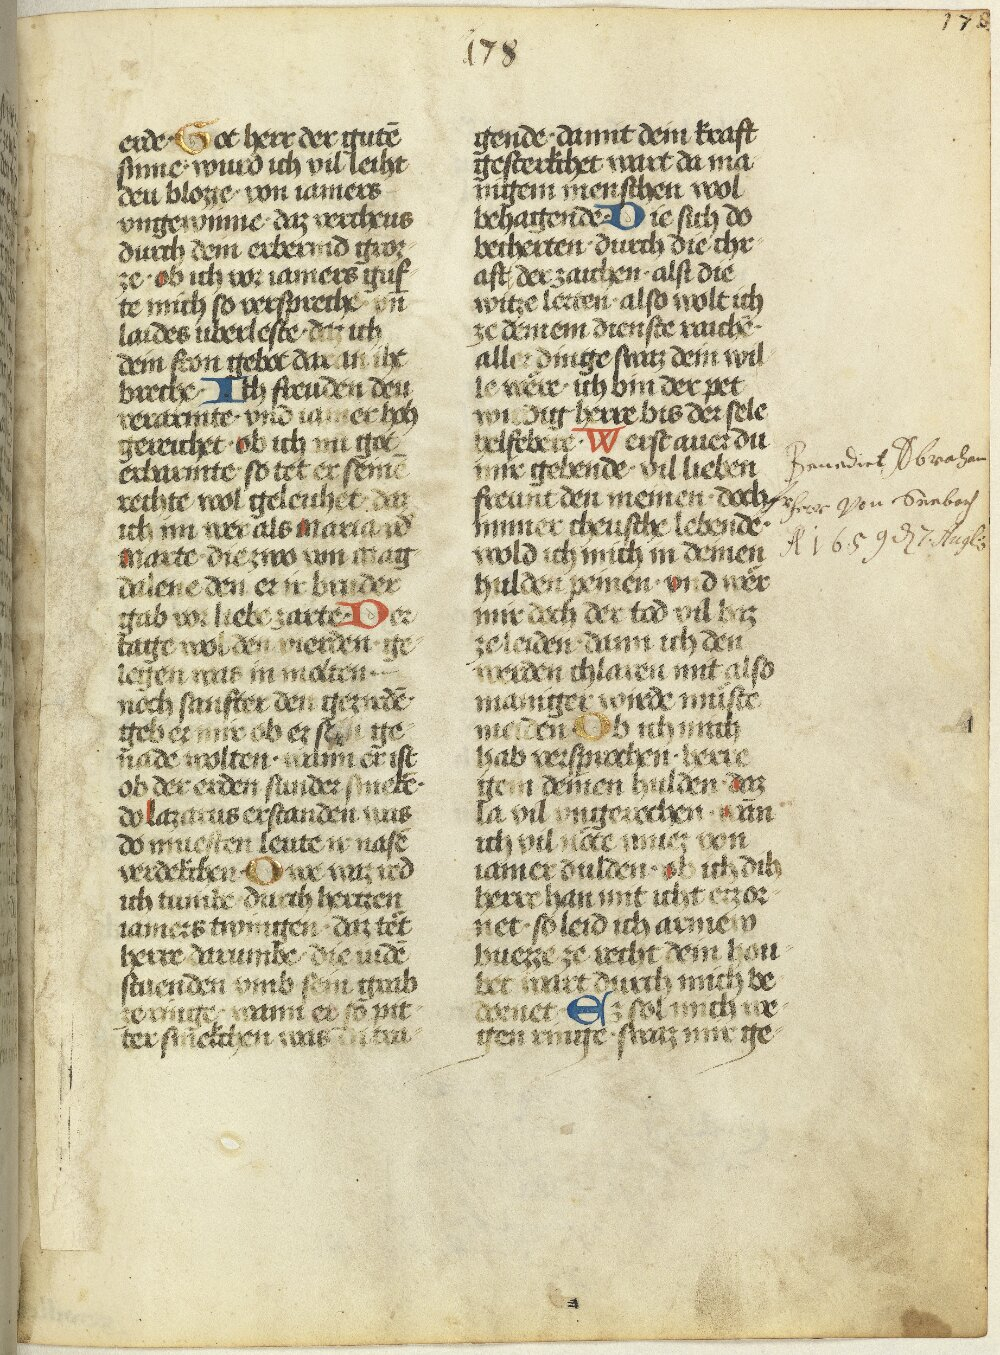 178
178
erde· Got herr der gutē
sinne· wurd ich vil leiht
den blozze· von iamers
vngewinne· daz rercheus
durch dem erbermd groz-
ze· ob ich vor iamers guf
te mich so verspreche· vn
laides uberleste· daz ich
dein fron gebot dar an iht
breche· Ich freuden den
verarmte· vnd iamer hoh
gereichet· ob ich nu got
erbarmte· so tet er seinē
rechte wol geleichet· daz
ich im wer als maria vnd
marte· die zwo von mag
dalene den er ir bruder
gab vor liebe zarte· Der
tage wol den vierden· ge
legen was in molten·
noch sanfter den gezirdē·
geb er mir ob er sein ge
nade wolten· wann er ist
ob der erden sunder smekē·
do lazarus erstanden was
do muesten leute ir nasē
verdekchen· Owe waz red
ich tumbe· durch herzen
iamers twingen· daz tet
herre darumbe· die iudē
stuenden vmb sein grab
ze ringe· wann er so pit-
ter smekchen was
gende· damit dein kraft
gesterkchet wart da ma
nigem menschen wol
behagende· Die sich do
becherten· durch die chr-
aft der zaichen· alst die
witze lerten· also wolt ich
ze deinem dienste raichē·
aller dinge swaz dein wil
le were· ich bin der pet
wirdig herre bis der sele
helfebere· Werst auer du
mir gebende· vil lieben
freunt den meinen· doch
immer cheusche lebende·
wold ich mich in deinen
hulden peinen· vnd wer
mir doch der tod vil baz
ze leiden· dann ich den
werden chlaren mit also
maniger wirde müste
meiden· Ob ich mich
hab versprochen· herre
gein deinen hulden· daz
la vil vngerochen· wan
ich vil note muez von
iamer dulden· ob ich dih
herre han mit icht erzor-
net· so leid ich armew
buezze ze recht dein hou-
bet wart durch mich be
dornet· Ez sol mich we-
gen ringe· swaz mir ge-
Benedict Abraham
Herr von Seebach
A 1659 d 7 Aug: